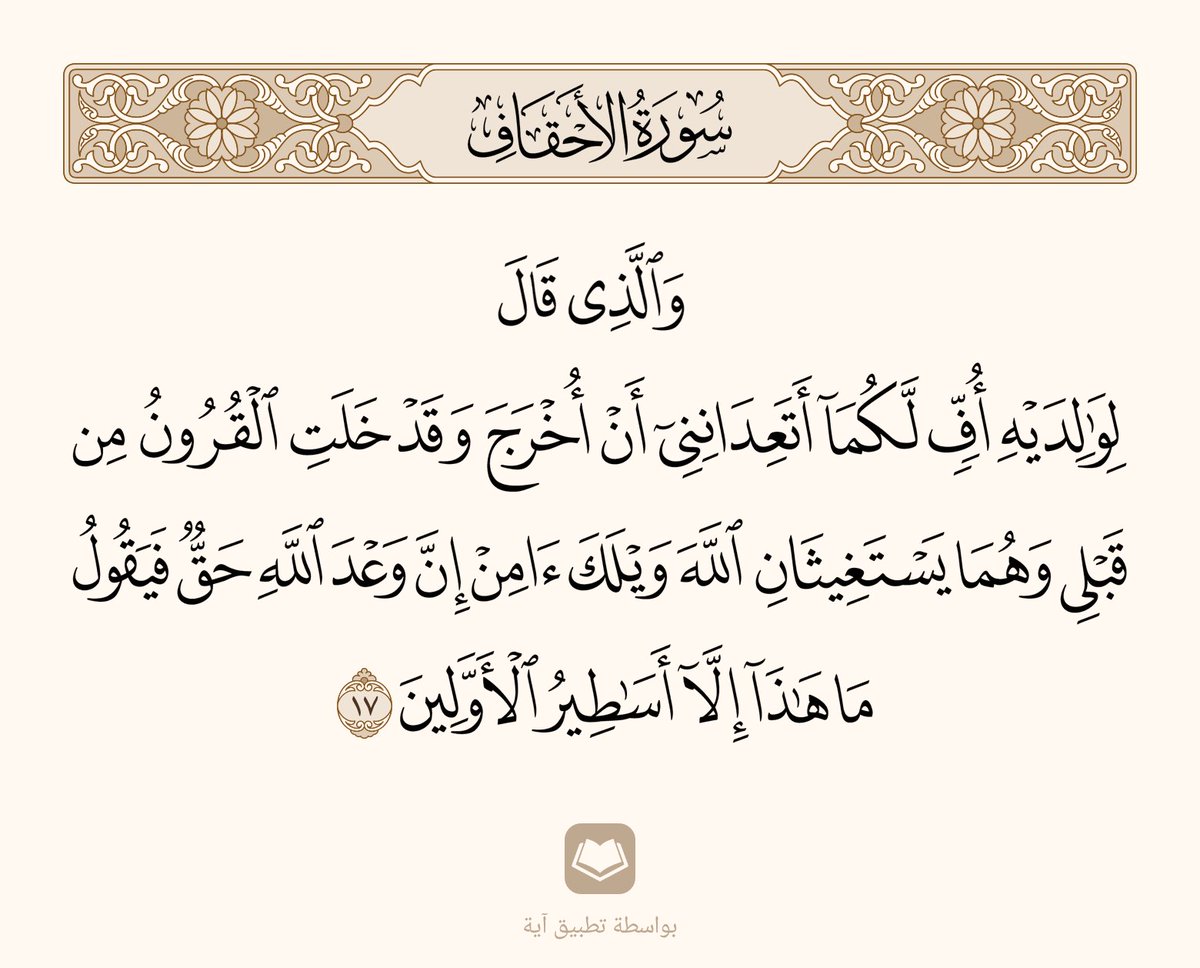 سُورَةُ الأَحۡقَافِ
وَٱلَّذِی قَالَ
لِوَٰلِدَیۡهِ أُفࣲّ لَّكُمَاۤ أَتَعِدَانِنِیۤ أَنۡ أُخۡرَجَ وَقَدۡ خَلَتِ ٱلۡقُرُونُ مِن
قَبۡلِی وَهُمَا یَسۡتَغِیثَانِ ٱللَّهَ وَیۡلَكَ ءَامِنۡ إِنَّ وَعۡدَ ٱللَّهِ حَقࣱّ فَیَقُولُ
مَا هَـٰذَاۤ إِلَّاۤ أَسَـٰطِیرُ ٱلۡأَوَّلِینَ ١٧
بواسطة تطبيق آية